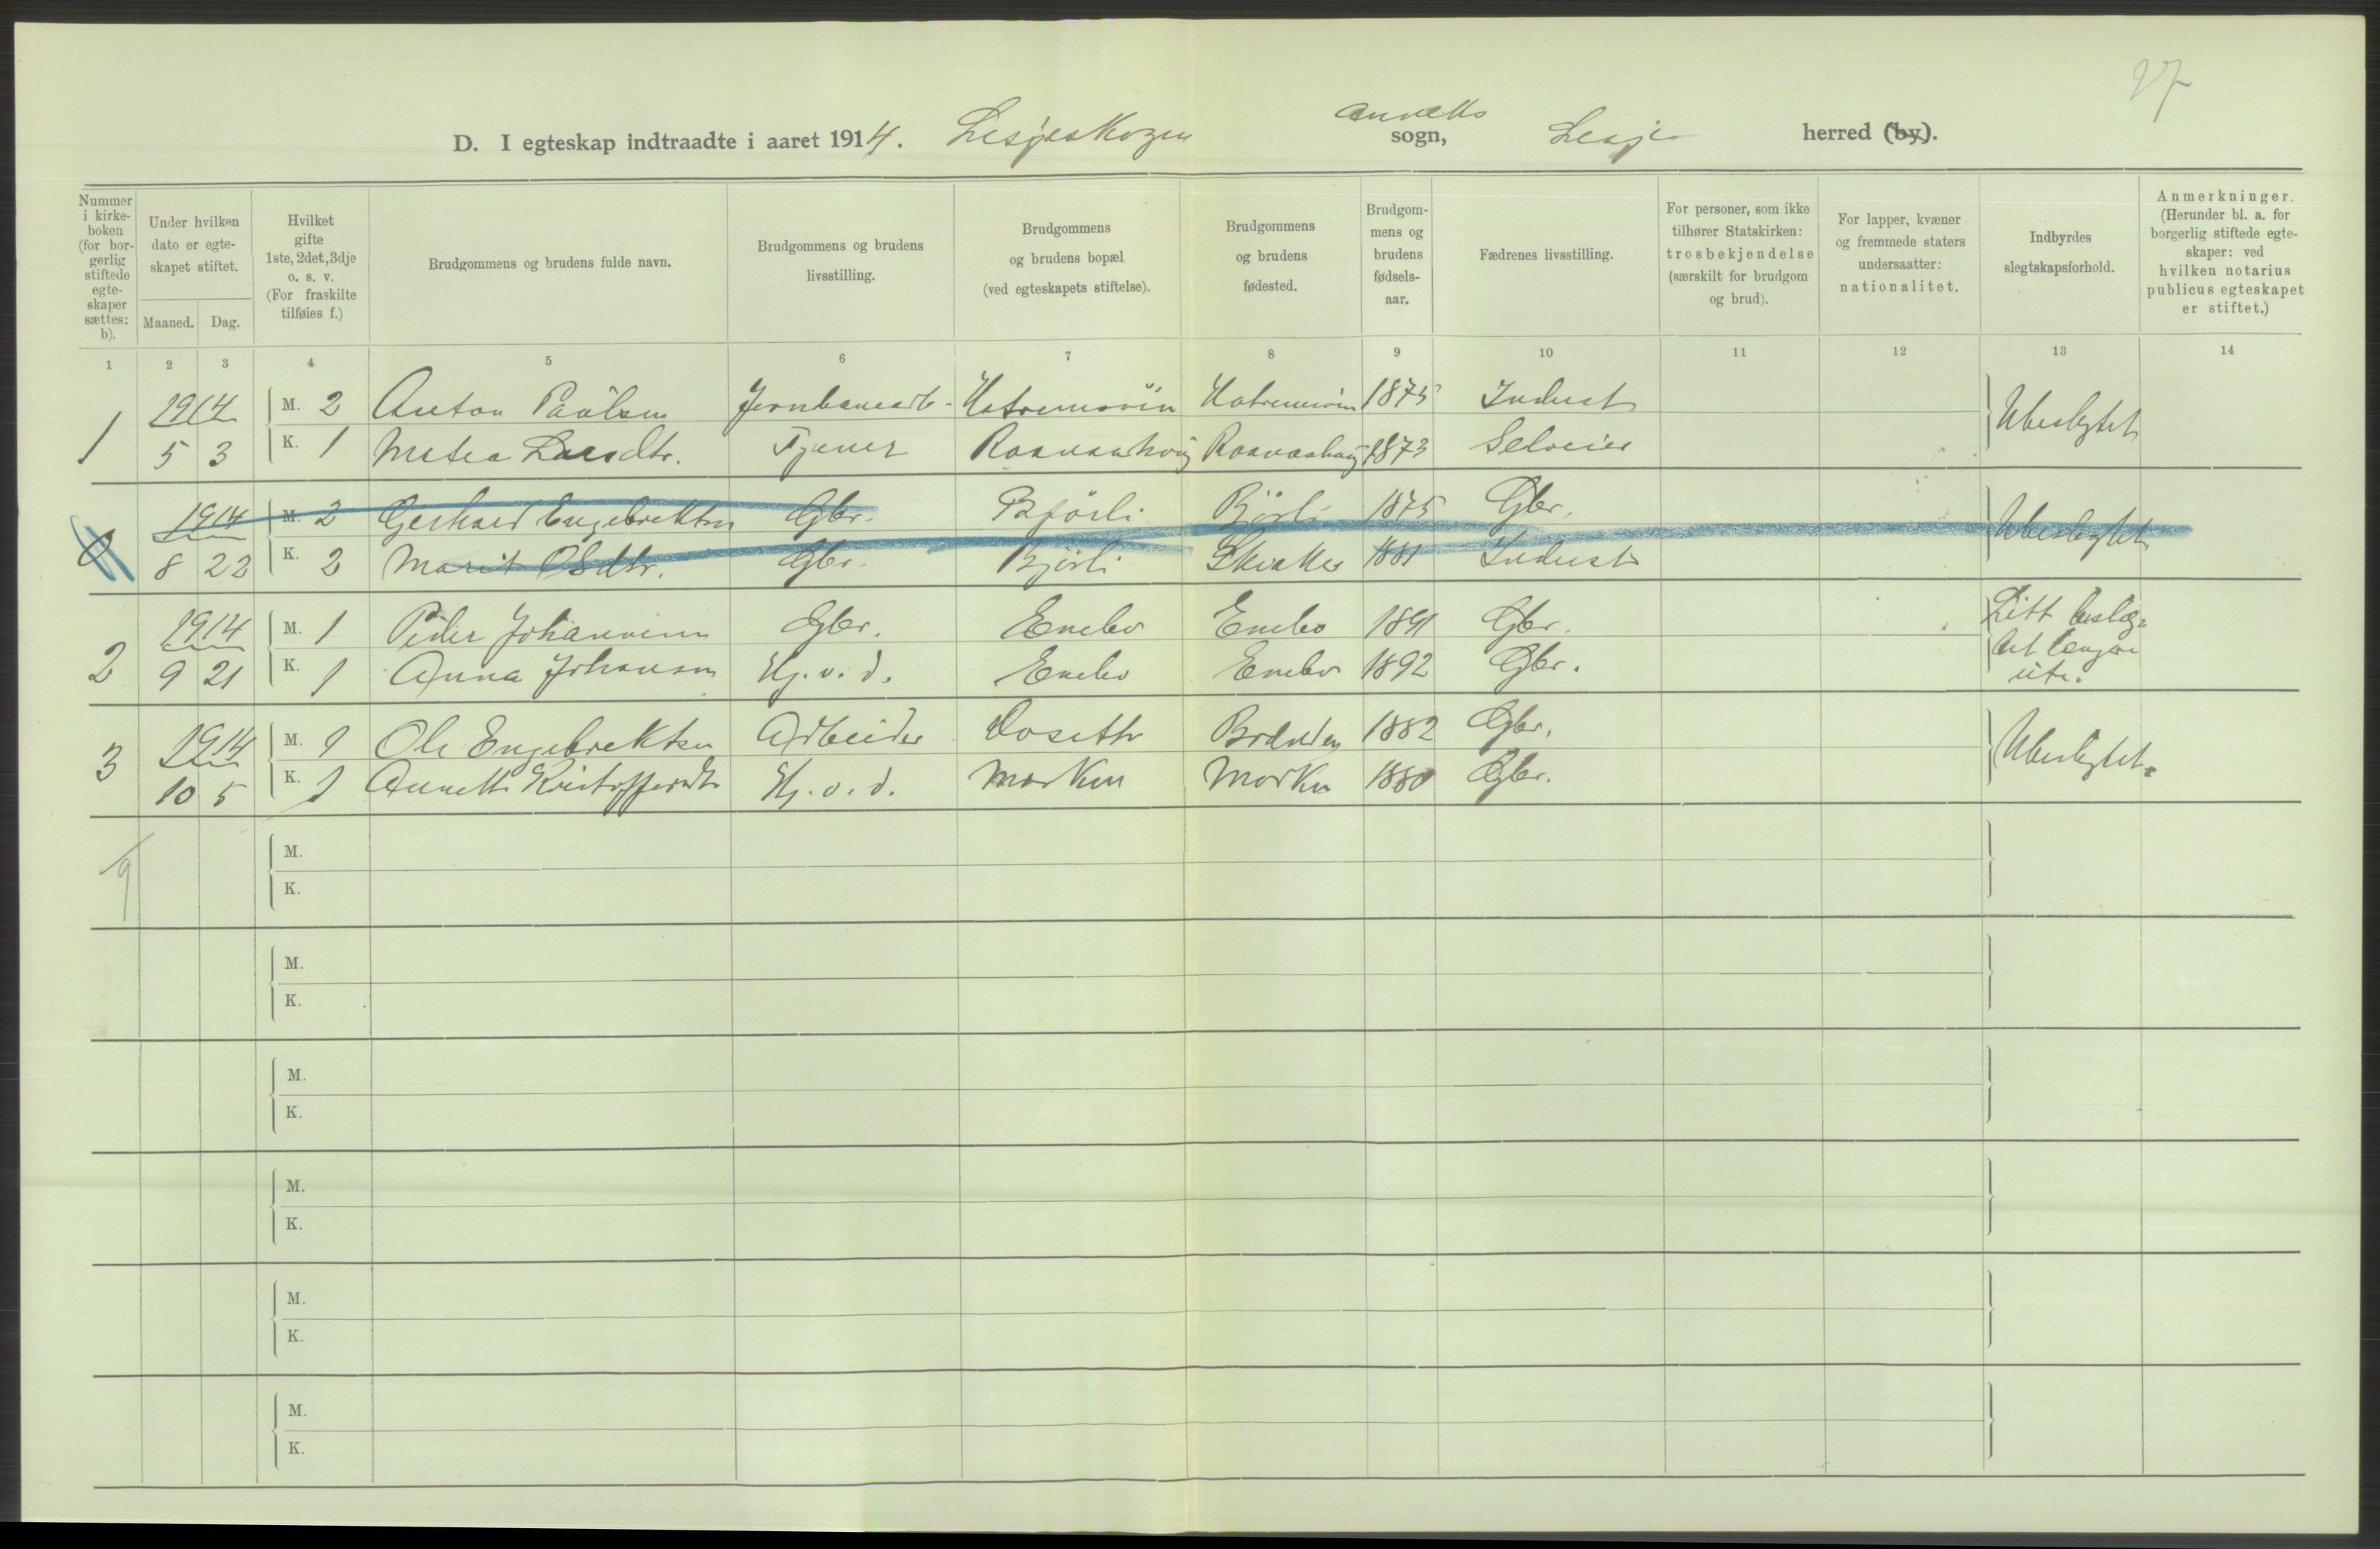 27
D. I egteskap indtraadte i aaret 1914. Lesjeskogen annekssogn, Lesje herred (by).
Nummer i kirkeboken (for borgerlig stiftede egteskaper sættes: b).
Under hvilken dato er egteskapet stiftet.
Maaned. Dag.
Hvilket gifte 1ste, 2det, 3dje o. s. v. (For fraskilte tilføies f.)
Brudgommens og brudens fulde navn.
Brudgommens og brudens livsstilling.
Brudgommens og brudens bopæl (ved egteskapets stiftelse).
Brudgommens og brudens fødested.
Brudgommens og brudens fødselsaar.
Fædrenes livsstilling.
For personer, som ikke tilhører Statskirken: trosbekjendelse (særskilt for brudgom og brud).
For lapper, kvæner og fremmede staters undersaatter: nationalitet.
Indbyrdes slegtskapsforhold.
Anmerkninger. (Herunder bl. a. for borgerlig stiftede egteskaper: ved hvilken notarius publicus egteskapet er stiftet.)
1 2 3 4 5 6 7 8 9 10 11 12 13 14
1914 M. 2 Anton Paulsen 1875 Inderst
1 5 3 K. 1 Metea Larsdtr. Tjener 1873 Selveier Ubeslegtet
1914 M. 2 Gerhard Engebrektsen Gbr. Bjørli Bjørli 1875 Gbr.
8 22 K. 2 Marit Olsdtr. Gbr. Bjørli Skiaker 1881 Inderst Ubeslegtet
1914 M. 1 Peder Johannesen Gbr. Enebo Enebo 1891 Gbr. Litt beslæg=
2 9 21 K. 1 Anna Johansen Hj. v. d. Enebo Enebo 1892 Gbr. tet længere
ute.
1914 M. 1 Ole Engebrektsen Arbeider Doseth 1882 Gbr.
3 10 5 K. 1 Annette Kristoffersdtr Hj. v. d. Morken Morken 1880 Gbr. Ubeslegtet.
M.
K.
M.
K.
M.
K.
M.
K.
M.
K.
M.
K.